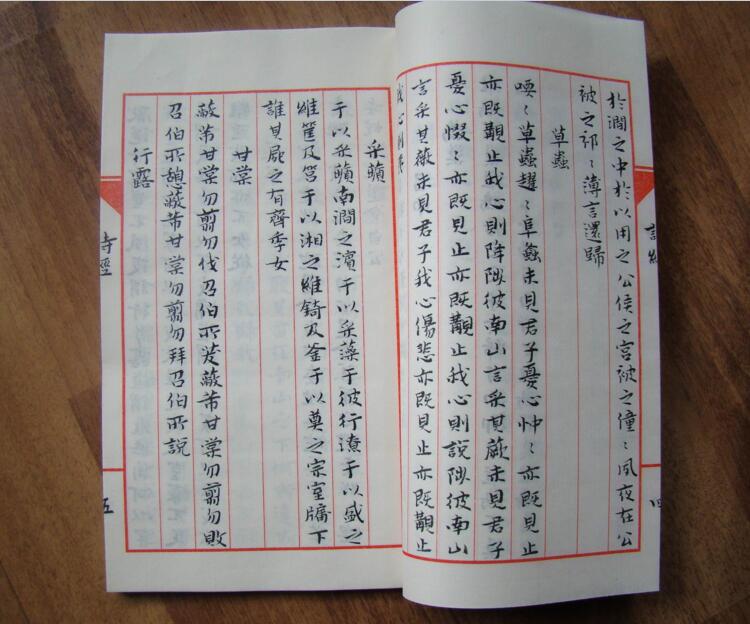 詩經
四
於澗之中於以用之公侯之宮被之僮〻夙夜在公
被之祁〻薄言還歸
草蟲
喓〻草蟲趯〻阜螽未見君子憂心忡〻亦既見止
亦既覯止我心則降陟彼南山言采其蕨未見君子
憂心惙〻亦既見止亦既覯止我心則說陟彼南山
言采其薇未見君子我心傷悲亦既見止亦既覯止
我心則夷
采蘋
于以采蘋南澗之濱于以采藻于彼行潦于以盛之
維筐及筥于以湘之維錡及釜于以奠之宗室牖下
誰其屍之有齊季女
甘棠
蔽芾甘棠勿翦勿伐召伯所茇蔽芾甘棠勿翦勿敗
召伯所憩蔽芾甘棠勿翦勿拜召伯所說
行露
詩經
五